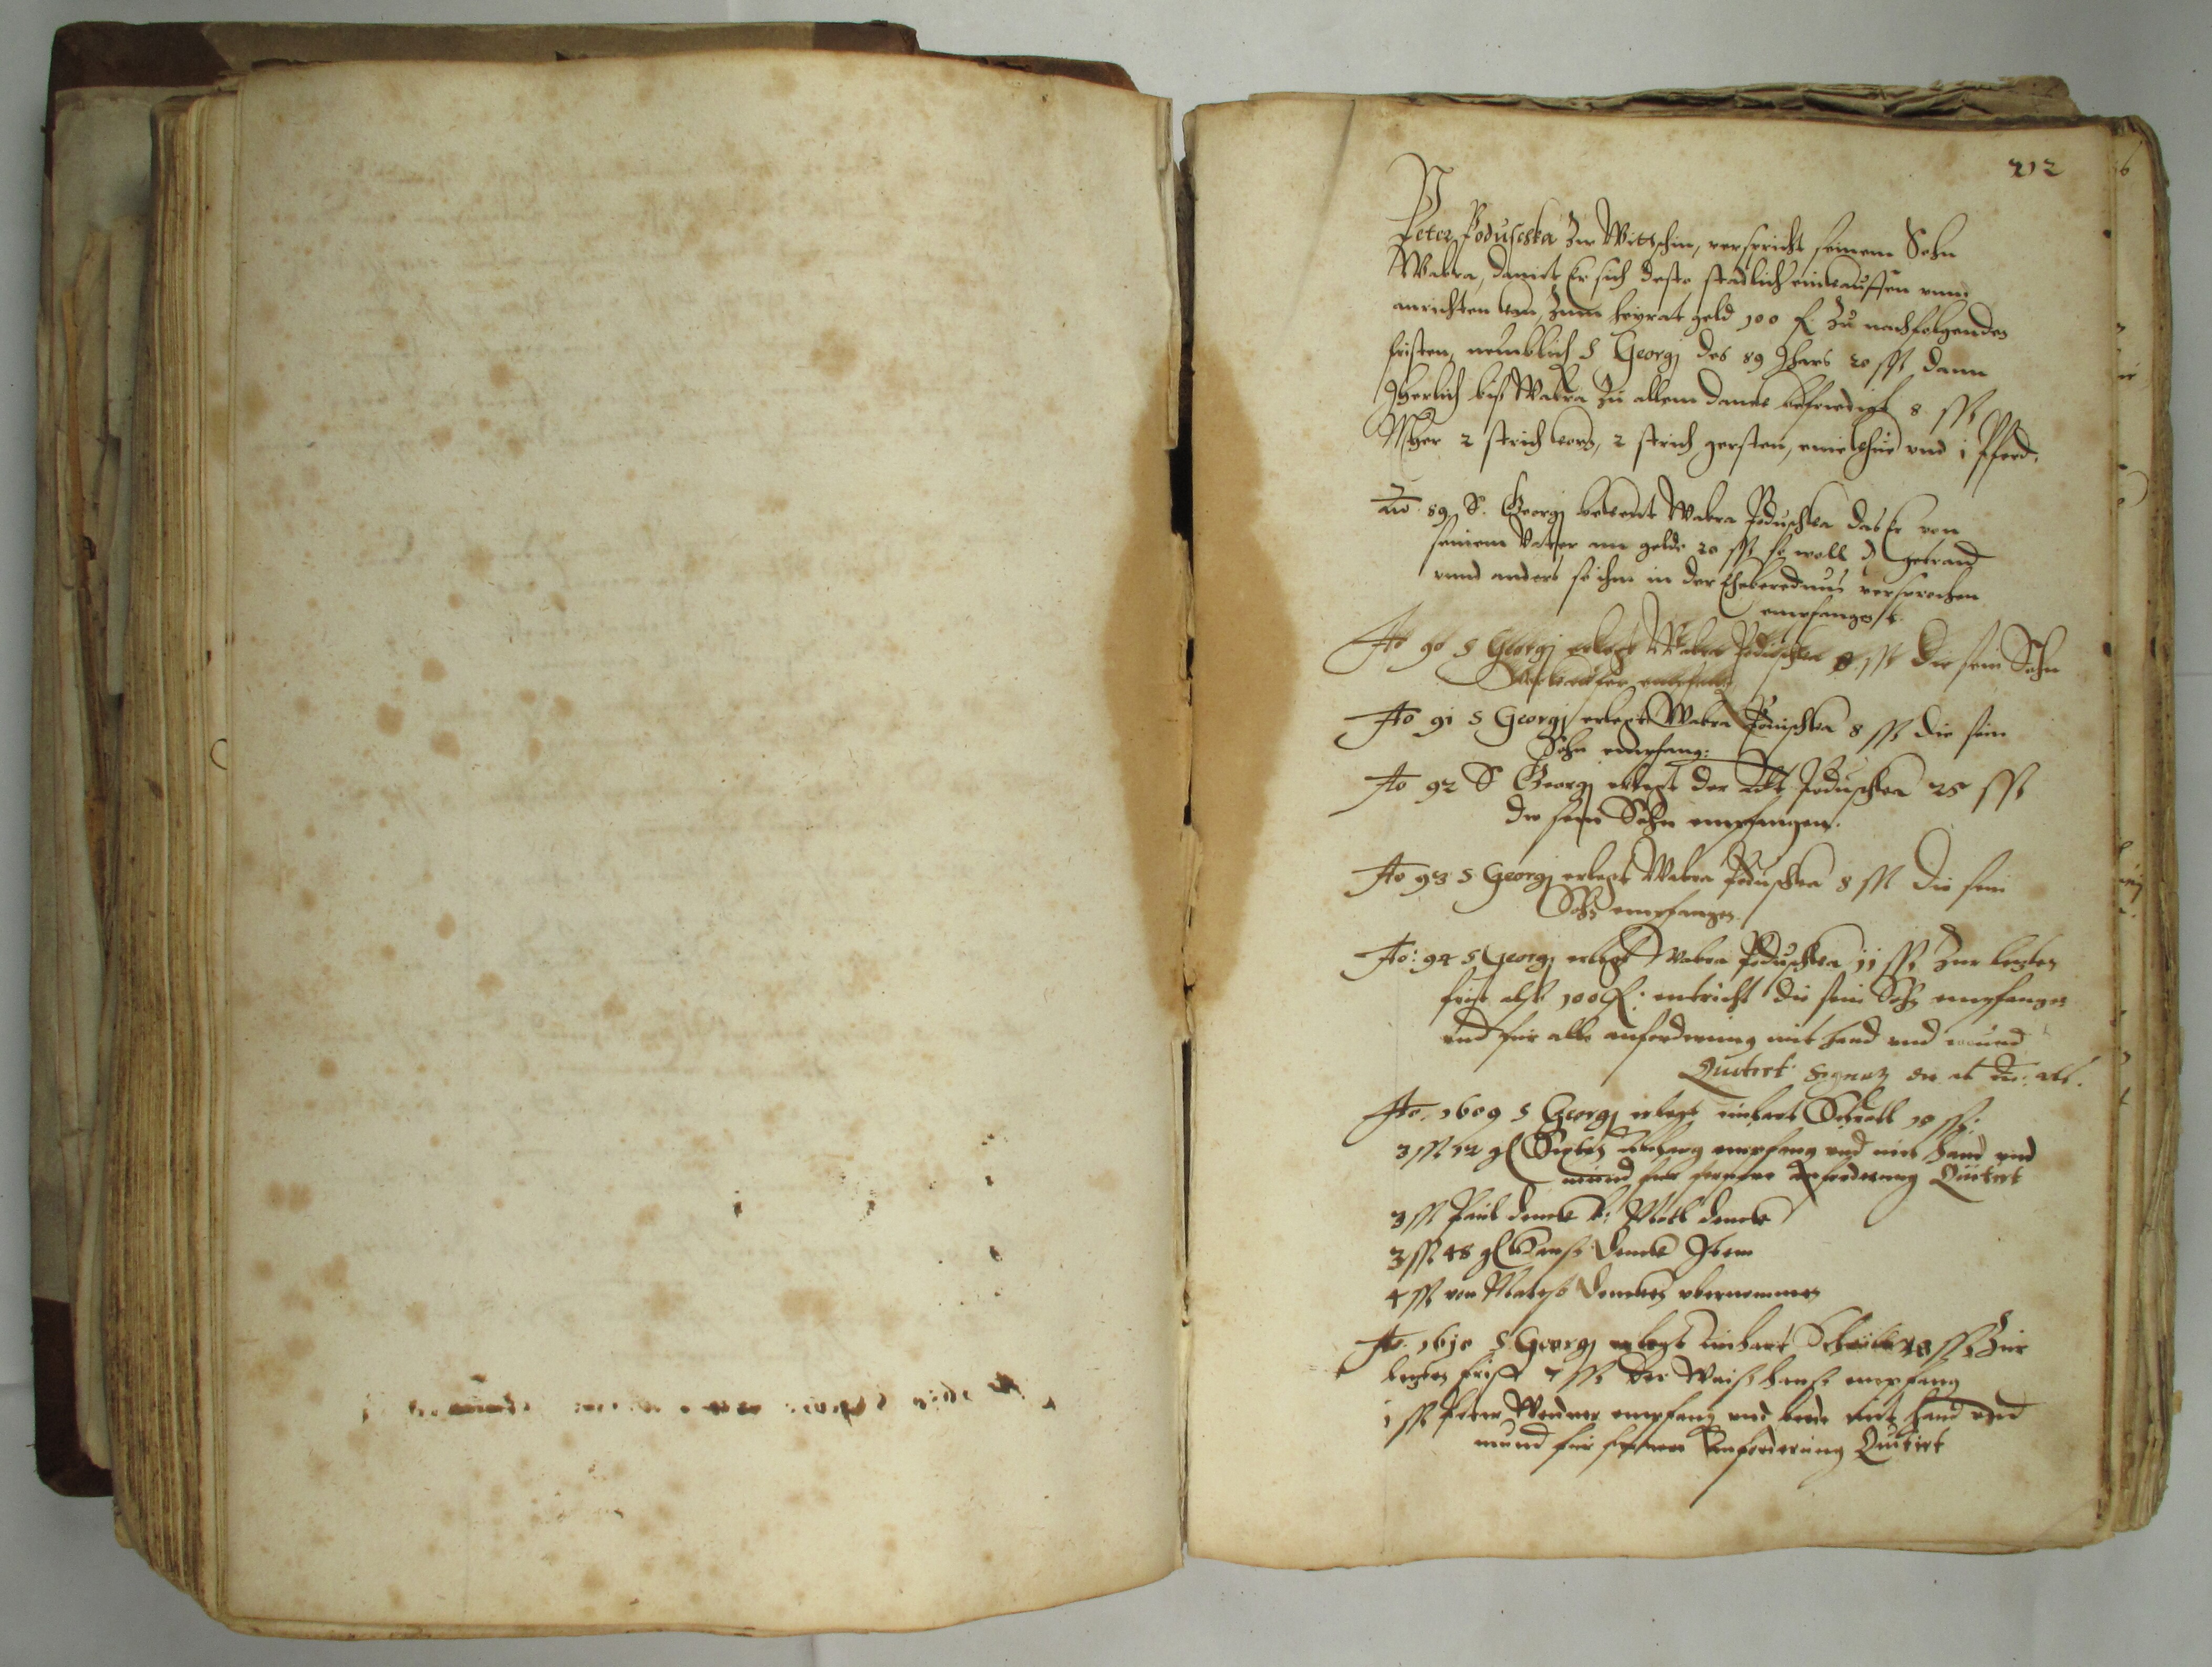 212
Peter Poduschka Zu Wittschin, verspricht seinem Sohn
Wabra, damit Er sich desto stadlich einkauffen vnnd
anrichten kan, Zum heyrat geld 100 fl. Zu nachfolgenden
fristen, nemblich S Georgj des 89 Jhars 20 ss, dann
Jherlich biß Wabra Zu allem danck befriedigt 8 ss
Mher 2 strich korn, 2 strich gersten, eine Khue vnd 1 Pferd.
Ao 89 S. Georgj bekent Wabra Poduschka das Er von
seinem Vater an geldt 20 ss so woll d getraid
vnnd anders so ihm in der Eheberednus versprochen
empfangen
Ao 90 S Georgj erlegt Wabra Poduschka 8 ss die sein Sohn
Ao 91 S Georgj erlegt Wabra Poduschka 8 ss die sein
Sohn empfang:
Ao 92 S Georgj erlegt der Alt Poduschka 25 ss
die sein Sohn empfangen.
Ao 93 S Georgj erlegt Wabra Poduschka 8 ss die sein
Sohn empfangen
Ao: 94 S Georgj erlegt Wabra Poduschka 11 ss Zur letzten
frist also 100 fl: entricht die sein Sohn empfangen
vnd für alle anforderung mit hand vnd mund
Quitirt
Ao. 1609 S Georgj erlegt 10 ss:
3 ss 12 gl empfang vnd mit hand vnd
mund für fernere Anforderung Quitirt
3 ss Paul denck
3 ss 48 gl Hanß denck Item
4 ss von dencken vbernommen
Ao. 1610 S Georgj erlegt Zur
letzten frist 7 ss der Waiß hanß empfang
1 ss Peter empfang vnd beede mit hand vnd
mund für fernere Anforderung Quitirt